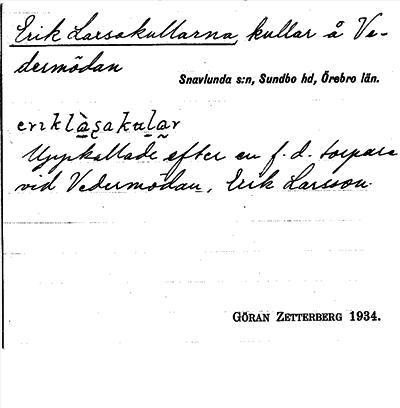 Erik Larsakullarna, kullar å Ve-
dermödan
Snavlunda s:n, Sundbo hd, Örebro län.
eriklàʂakuḷar
Uppkallade efter en f. d. torpare
vid Vedermödan, Erik Larsson.
GÖRAN ZETTERBERG 1934.